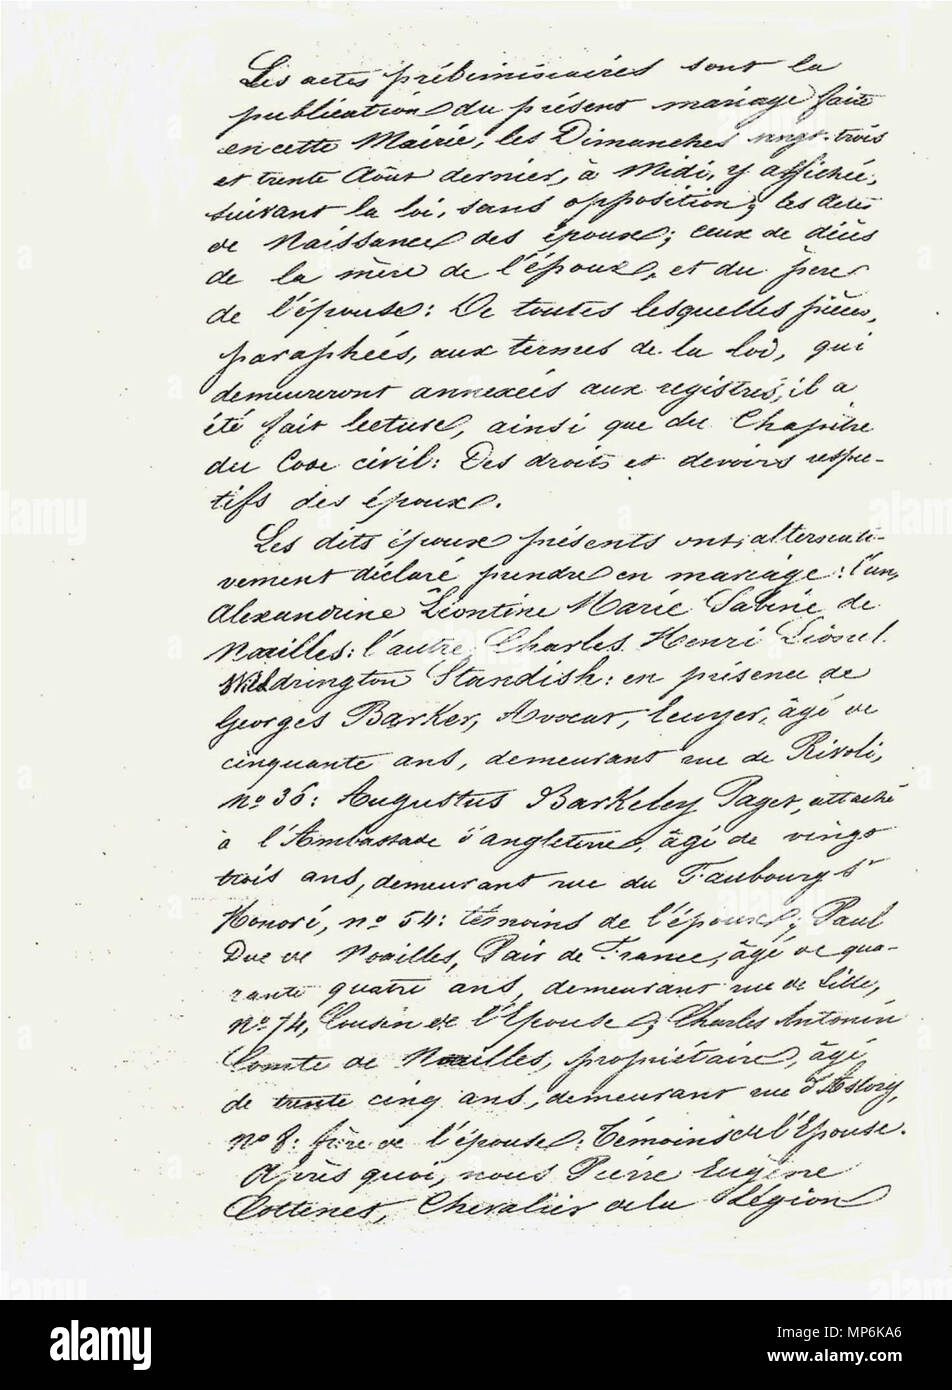 Les actes préliminaires sont la
publication du présent mariage faite
en cette Mairie, les Dimanches vingt-trois
et trente Août dernier, à Midi, y affichée,
suivant la loi, sans opposition; les actes
de Naissance des époux; ceux de décès
de la mère de l'époux, et du père
de l'épouse: De toutes lesquelles pièces,
paraphées, aux termes de la loi, qui
demeureront annexées aux registres, il a
été fait lecture, ainsi que du Chapitre
du Code civil: Des droits et devoirs respec-
tifs des époux.
Les dits époux présents ont alternati-
vement déclaré prendre en mariage: l'un,
Alexandrine Léontine Marie Sabine de
Noailles: l'autre, Charles Henri Lionel
Widdrington Standish: en présence de
Georges Barker, Avocat, Ecuyer, âgé de
cinquante ans, demeurant rue de Rivoli,
No 36: Augustus Barkeley Paget, attaché
à l'Ambassade d'angleterre, âgé de vingt
trois ans, demeurant rue du Faubourg St
Honoré, no 54: témoins de l'époux; Paul
Duc de Noailles, Pair de France, âgé de qua-
rante quatre ans, demeurant rue de Lille,
No 74, Cousin de l'Epouse; Charles Antonin
Comte de Noailles, propriétaire, âgé
de trente cinq ans, demeurant rue d'Astorg,
No 8: frère de l'épouse: Témoins de l'Epouse.
Après quoi, nous Pierre Eugène
Cottenet, Chevalier de la Légion
alamy
Image ID: MP6KA6
www.alamy.com